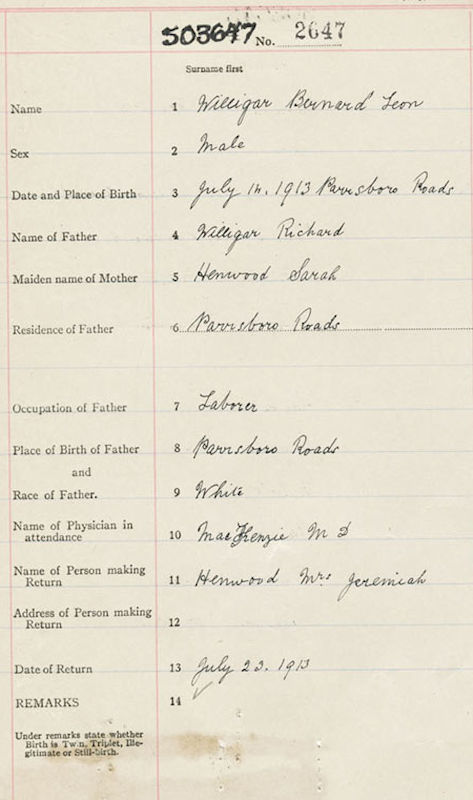 503647 No. 2647
Surname first
Name 1 Willigar Bernard Leon
Sex 2 Male
Date and Place of Birth 3 July 14. 1913 Parrsboro Roads
Name of Father 4 Willigar Richard
Maiden name of Mother 5 Henwood Sarah
Residence of Father 6 Parrsboro Roads
Occupation of Father 7 Laborer
Place of Birth of Father 8 Parrsboro Roads
and
Race of Father. 9 White
Name of Physician in
attendance 10 MacKenzie M D
Name of Person making
Return 11 Henwood Mrs Jeremiah
Address of Person making
Return 12
Date of Return 13 July 23. 1913
REMARKS 14 ✓
Under remarks state whether
Birth is Twin, Triplet, Ille-
gitimate or Still-birth.